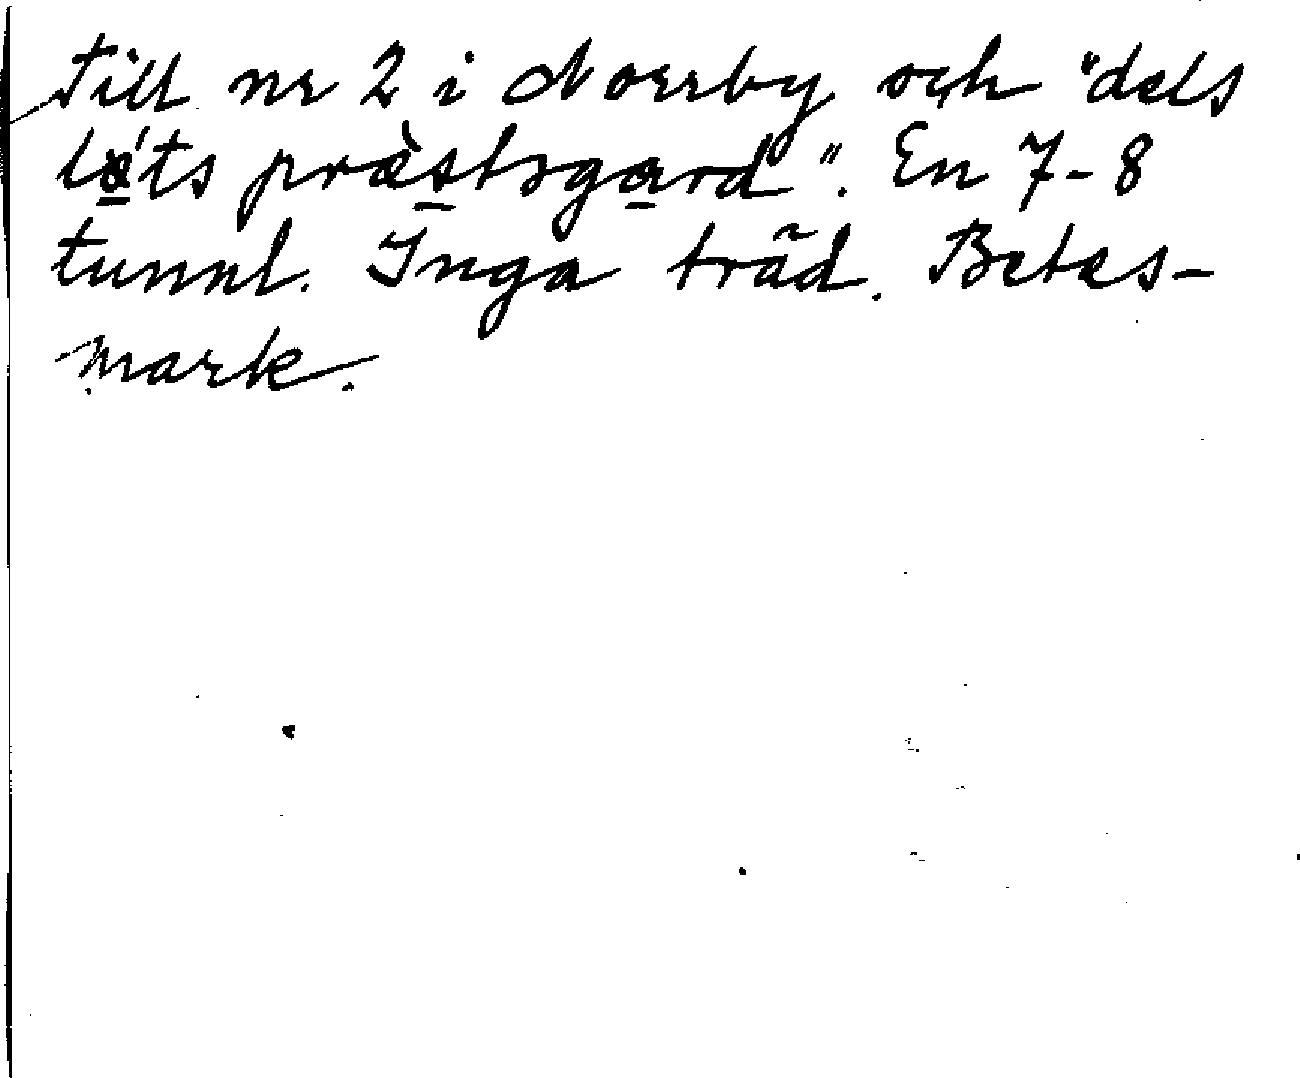 Till nr 2 i Norrby och "dels
löts præstsgard". En 7-8
tunnl. Inga träd. Betes-
mark.